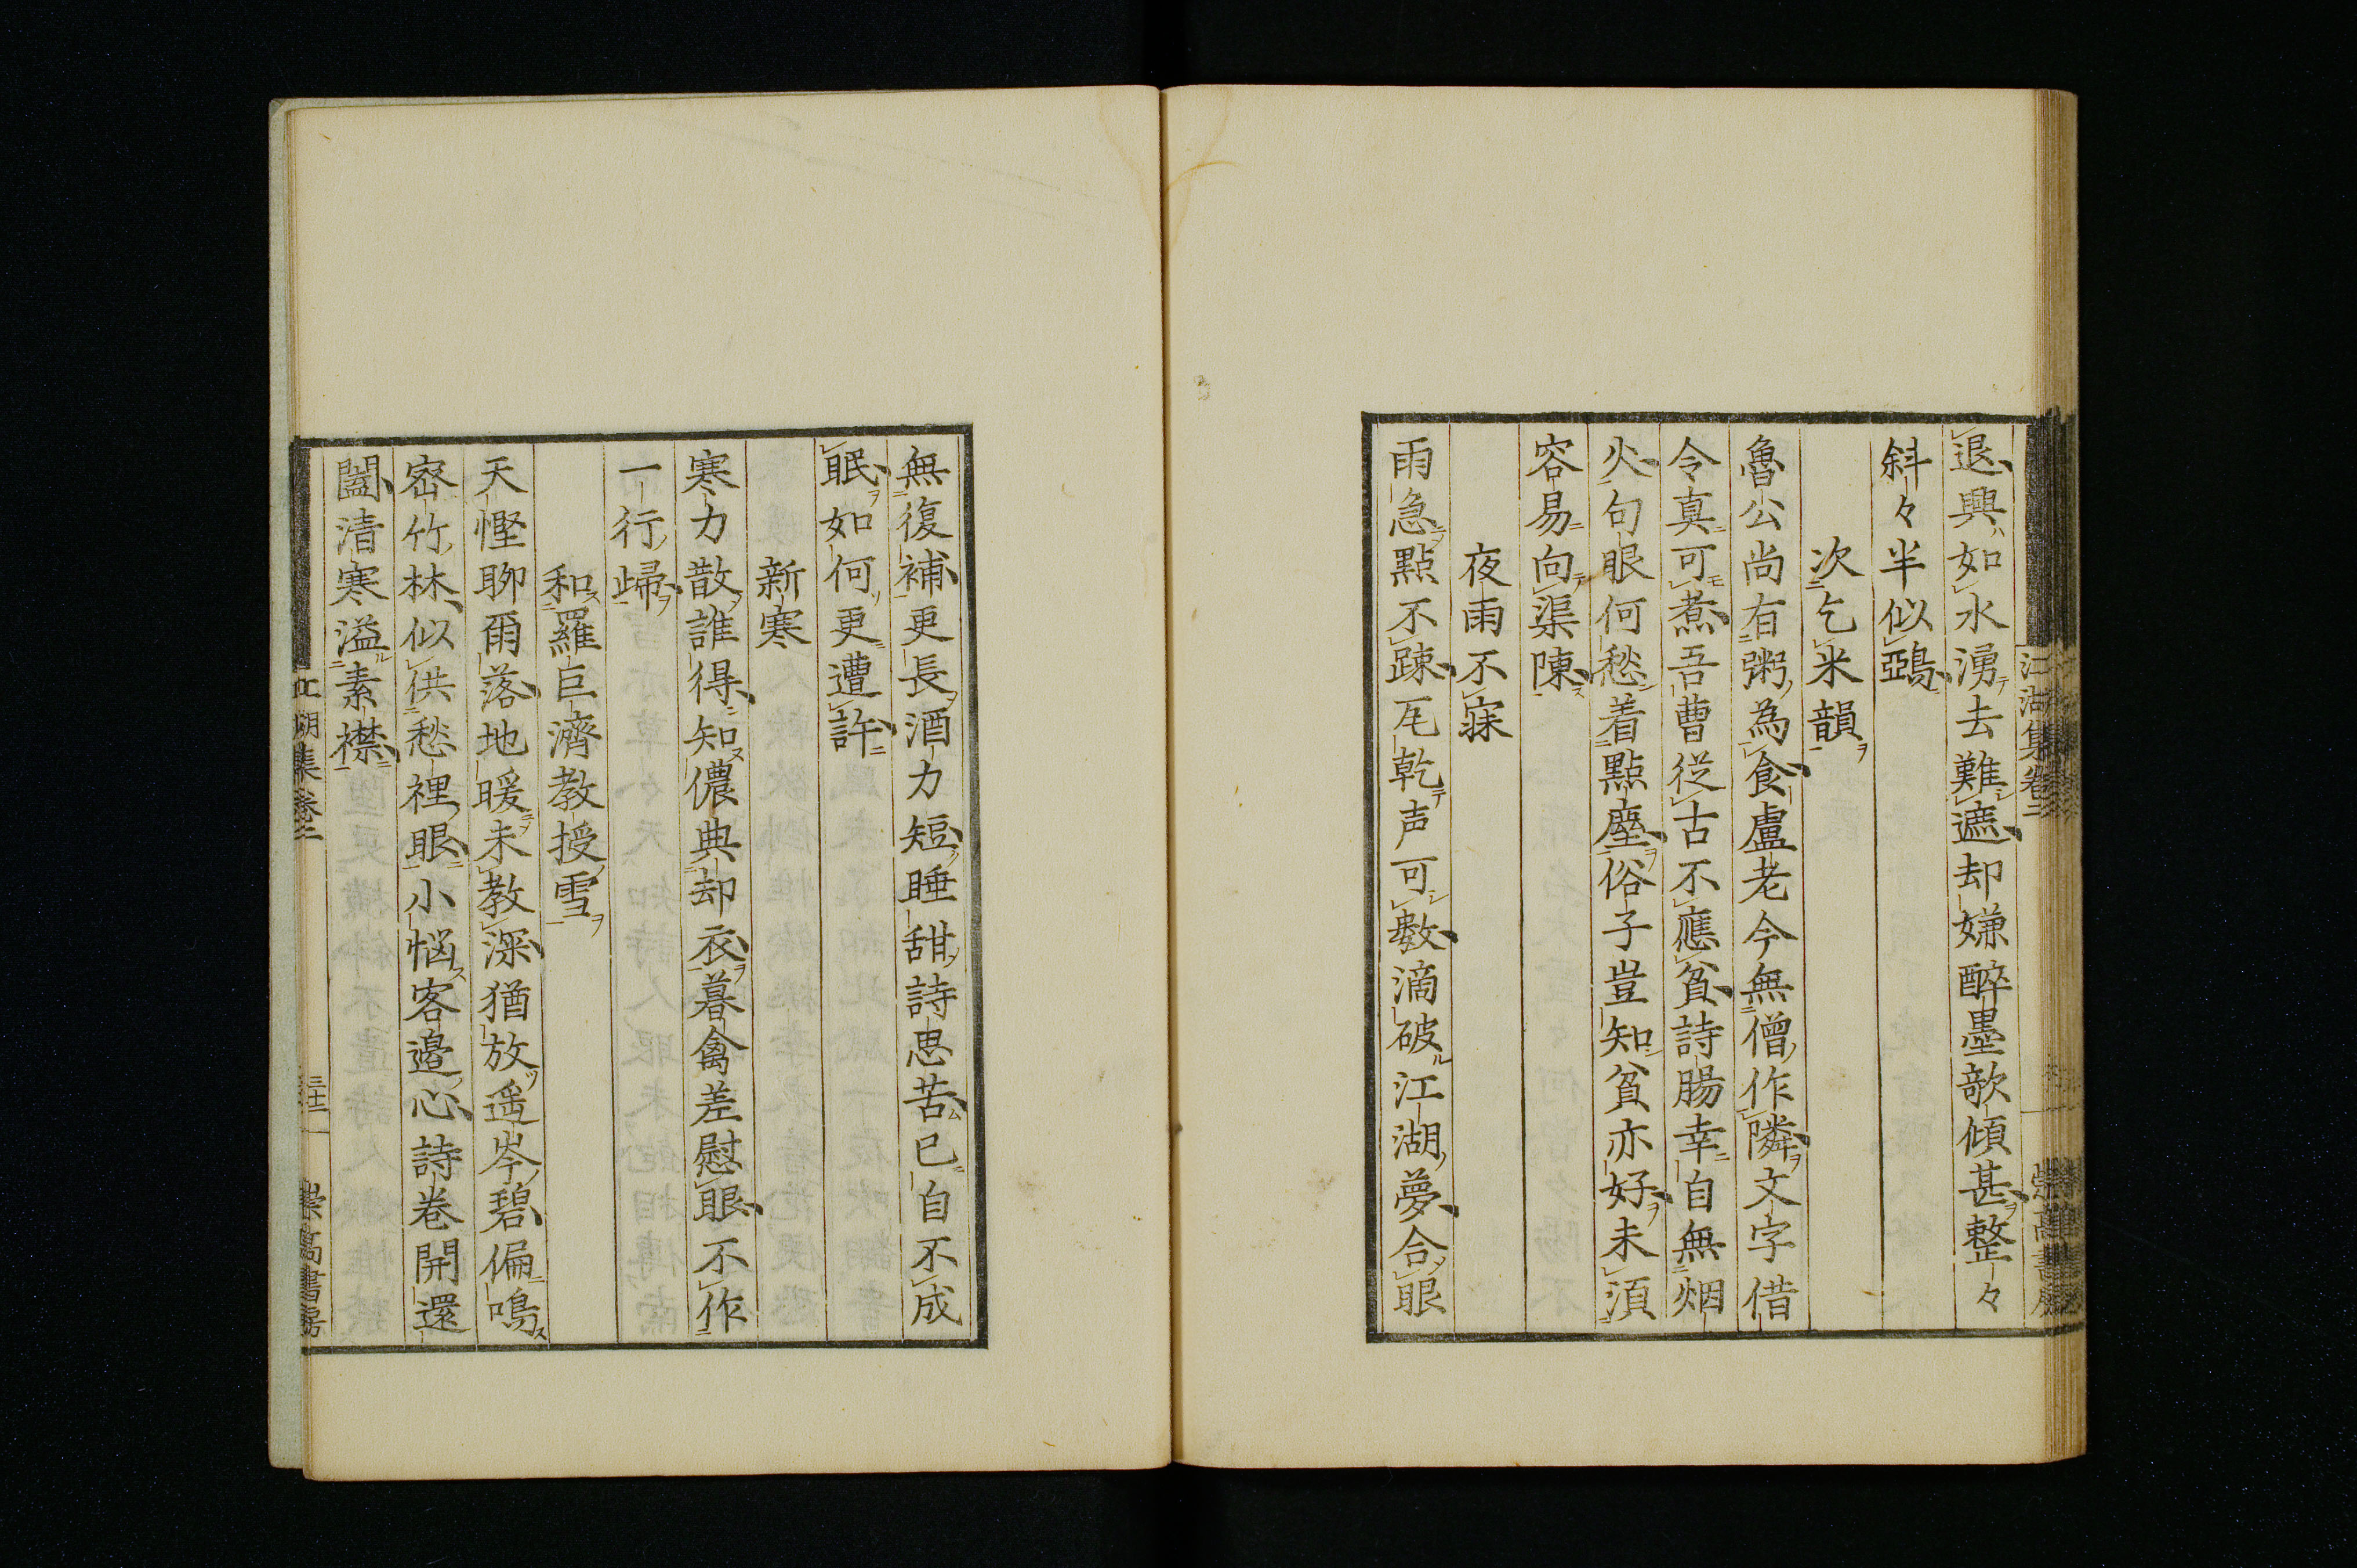 江湖集卷二
退興如水湧去難遮却嫌醉墨欹傾甚整々
斜々半似鵶
次乞米韻
魯公尚有粥為食盧老今無僧作隣文字借
令真可煮吾曹従古不應貧詩腸幸自無烟
火句眼何愁着點塵俗子豈知貧亦好未湏
容易向渠陳
夜雨不寐
雨急點不踈瓦乾声可數滴破江湖夢合眼
無復補更長酒力短睡甜詩思苦已自不成
眠如何更遭許
新寒
寒力散誰得知儂典却衣暮禽差慰眼不作
一行歸
和羅巨濟教授雪
天慳聊爾落地暖未教深猶放遥岑碧偏鳴
宻竹林似供愁裡眼小惱客邉心詩巻開還
闔清寒溢素襟
江湖集卷二
崇高書房